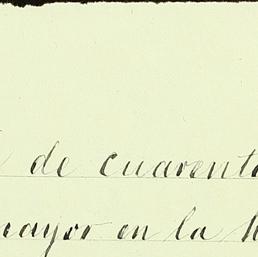 de cuarenta
mayor en la